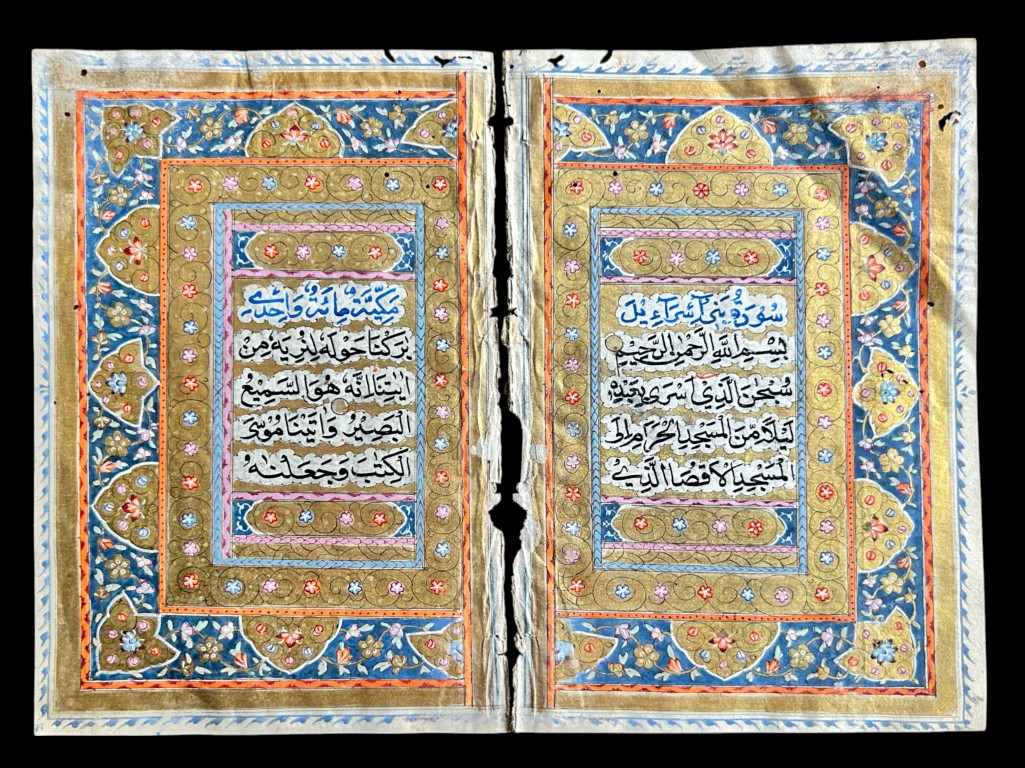 سُورَةُ بَنِيٓ اِسْرَآءِيْلَ
بِسْمِ اللّٰهِ الرَّحْمٰنِ الرَّحِيْمِ
سُبْحٰنَ الَّذِيْٓ اَسْرٰى بِعَبْدِهٖ
لَيْلًا مِّنَ الْمَسْجِدِ الْحَرَامِ اِلَى
الْمَسْجِدِ الْاَقْصَا الَّذِيْ
مَكِّيَّةٌ مِائَةٌ وَاِحْدٰى
بٰرَكْنَا حَوْلَهٗ لِنُرِيَهٗ مِنْ
اٰيٰتِنَا اِنَّهٗ هُوَ السَّمِيْعُ
الْبَصِيْرُ وَاٰتَيْنَا مُوْسَى
الْكِتٰبَ وَجَعَلْنٰهُ